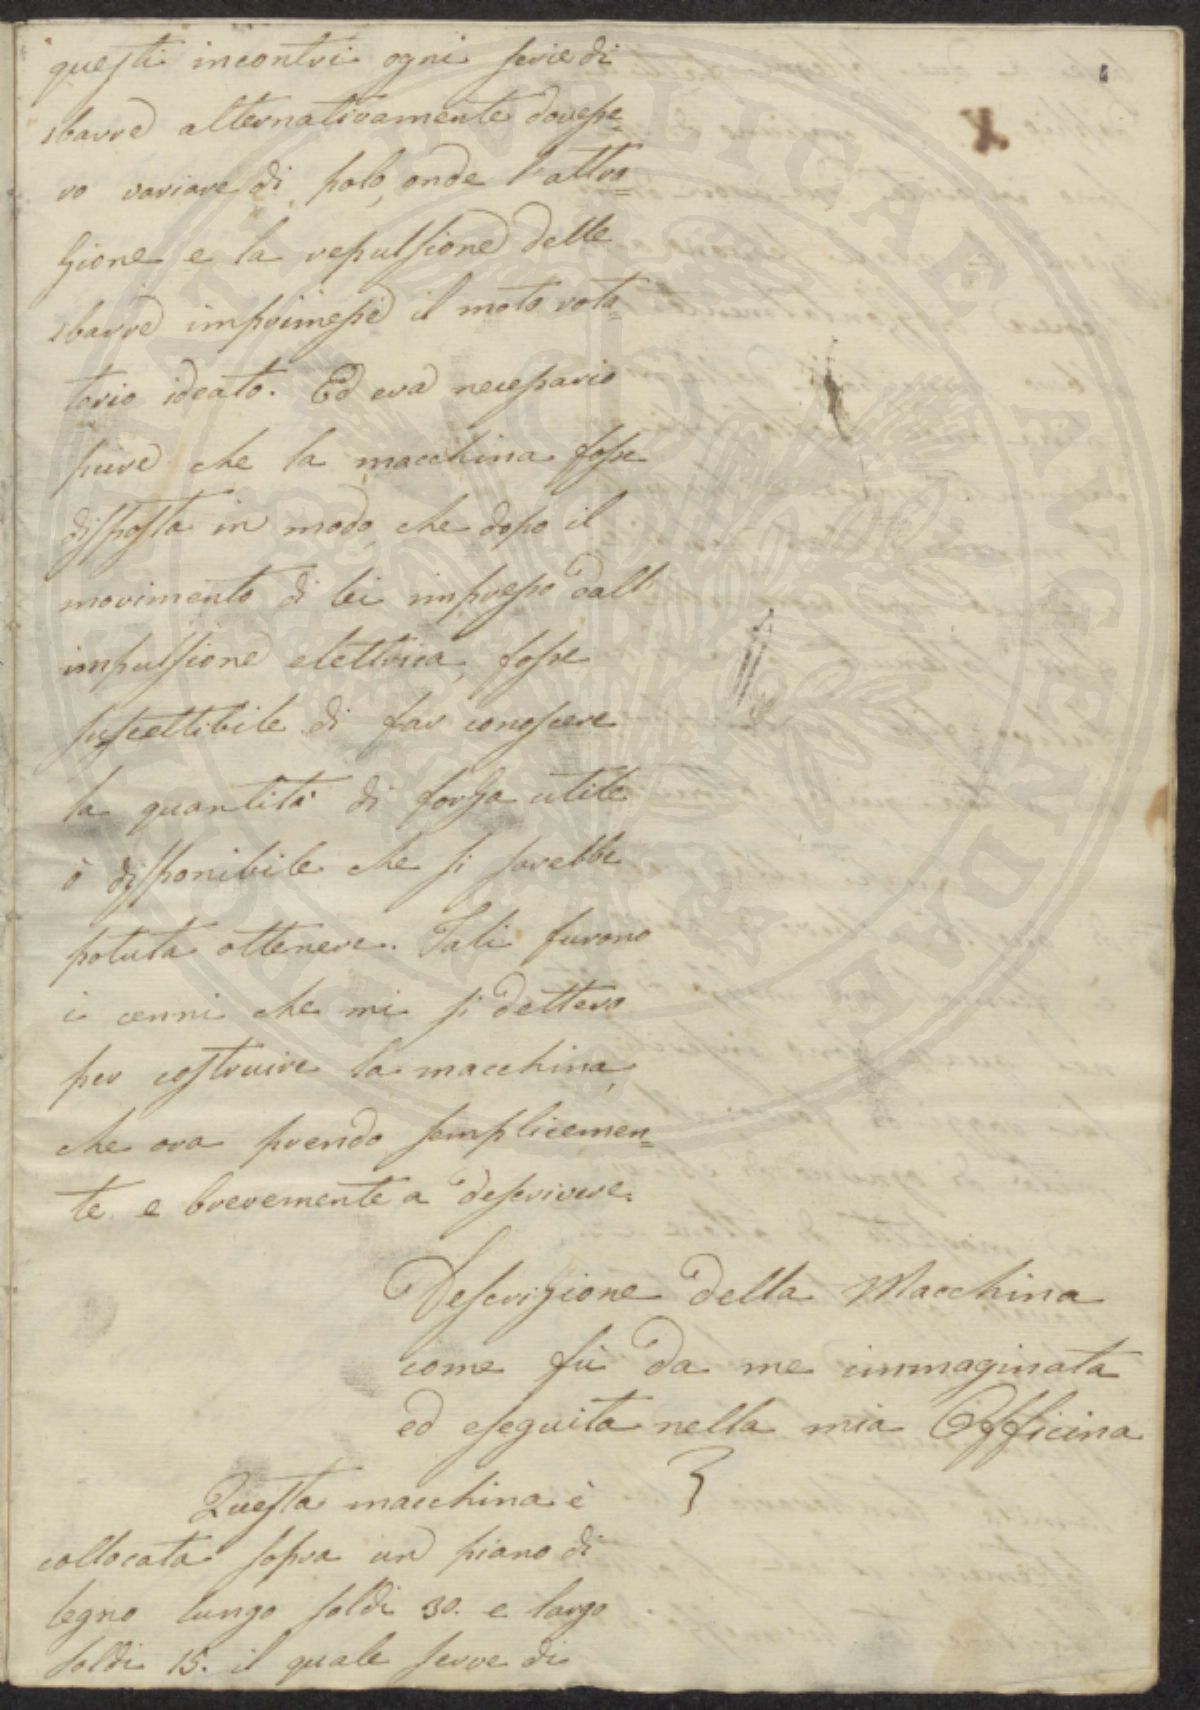 questi incontri ogni serie di
sbarre alternativamente dovesse=
ro variare di polo, onde l'attra=
zione e la repulsione delle
sbarre imprimesse il moto rota=
torio ideato. Ed era necessario
pure che la macchina fosse
disposta in modo, che dopo il
movimento di lei impresso dall'
impulsione elettrica, fosse
suscettibile di far conoscere
la quantità di forza utile
ò disponibile che si sarebbe
potuta ottenere. Tali furono
i cenni che mi si dettero
per costruire la macchina,
che ora prendo semplicemen=
te e brevemente a descrivere.
Descrizione della Macchina
come fù da me immaginata
ed eseguita nella mia Officina
Questa macchina è
collocata sopra un piano di
legno lungo soldi 30. e largo
soldi 15. il quale serve di